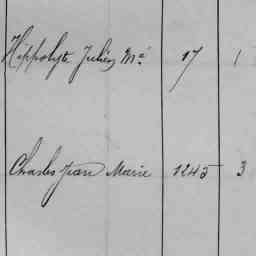 Hippolyte Julien Mie 17 1
Charles Jean Marie 1245 3